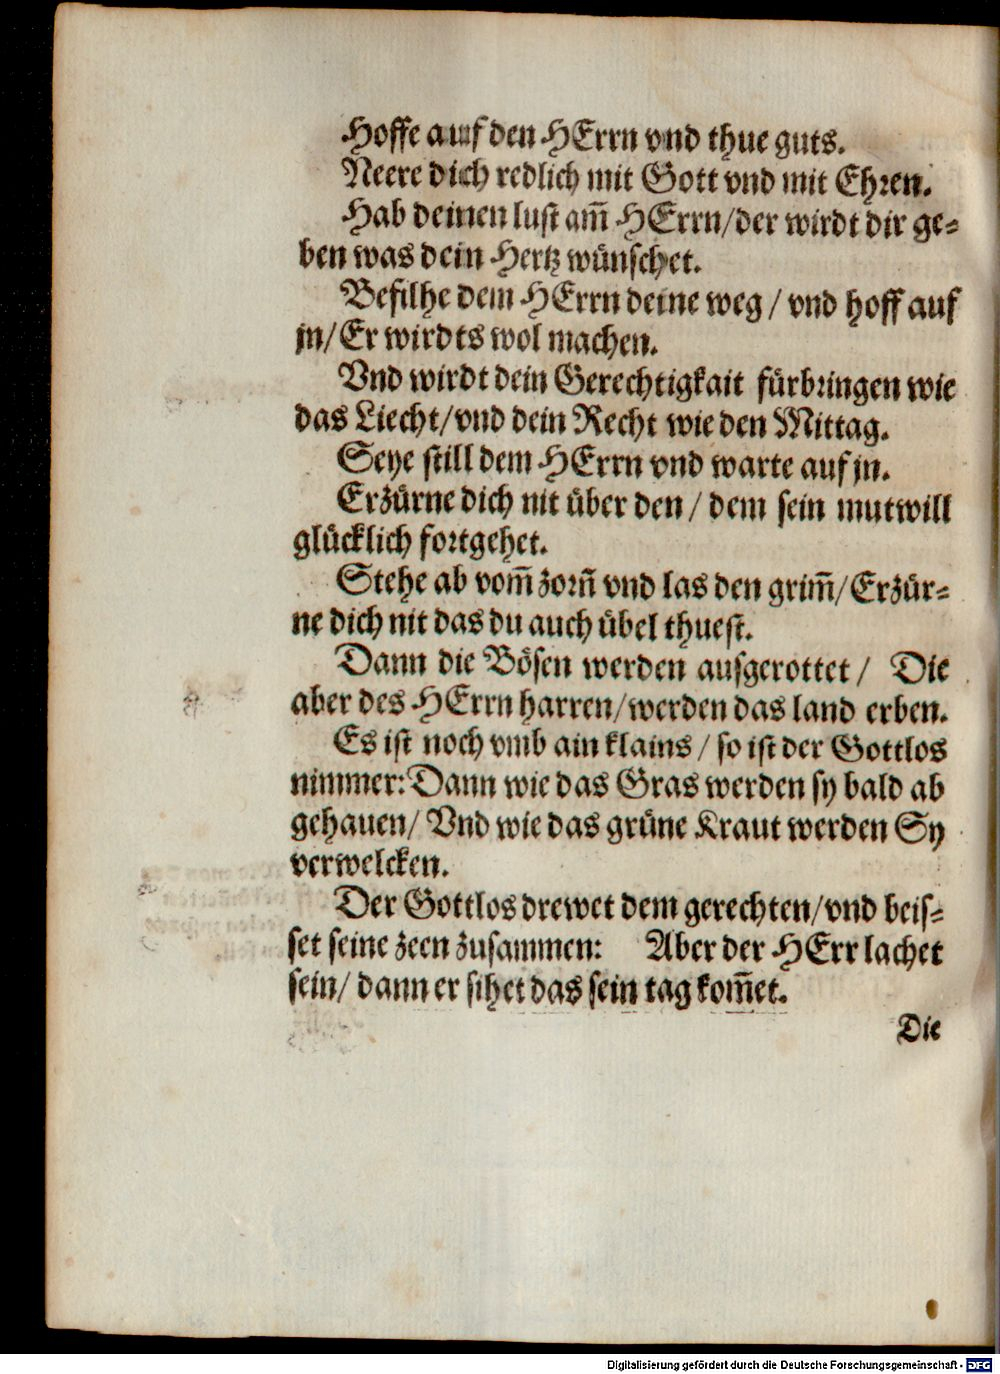 Hoffe auf den HErrn vnd thue guts.
Neere dich redlich mit Gott vnd mit Ehren.
Hab deinen lust am̃ HErrn/der wirdt dir ge-
ben was dein Hertz wünschet.
Befilhe dem HErrn deine weg / vnd hoff auf
jn/ Er wirdts wol machen.
Vnd wirdt dein Gerechtigkait fürbringen wie
das Liecht/vnd dein Recht wie den Mittag.
Seye still dem HErrn vnd warte auf jn.
Erzürne dich nit über den / dem sein mutwill
glücklich fortgehet.
Stehe ab vom̃ zorñ vnd las den grim̃/ Erzür-
ne dich nit das du auch übel thuest.
Dann die Bösen werden ausgerottet / Die
aber des HErrn harren/werden das land erben.
Es ist noch vmb ain klains / so ist der Gottlos
nimmer: Dann wie das Gras werden sy bald ab
gehauen/ Vnd wie das grüne Kraut werden Sy
verwelcken.
Der Gottlos drewet dem gerechten/vnd beis-
set seine zeen zusammen: Aber der HErr lachet
sein/ dann er sihet das sein tag kom̃et.
Die
Digitalisierung gefördert durch die Deutsche Forschungsgemeinschaft - DFG